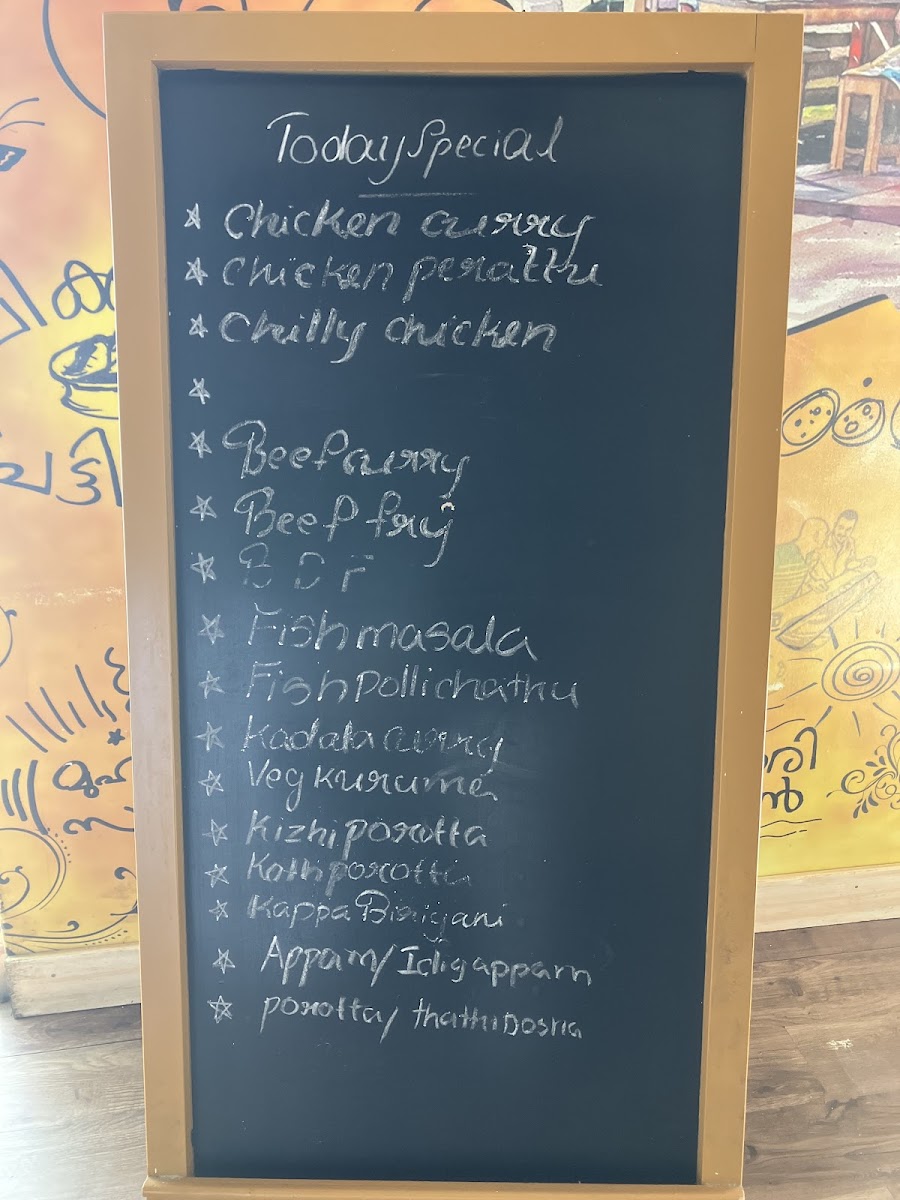 Today Special
Chicken curry
Chicken perattu
Chilly chicken
Beef curry
Beef fry
B D F
Fish masala
Fish pollichathu
Kadala curry
Veg kuruma
Kizhi porotta
Kothi porotta
Kappa Biriyani
Appam/Idiyappam
porotta/ thattu Dosha